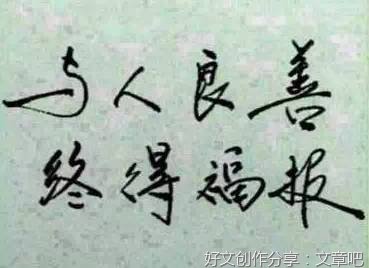 与人良善
终得福报
好文创作分享：文章吧